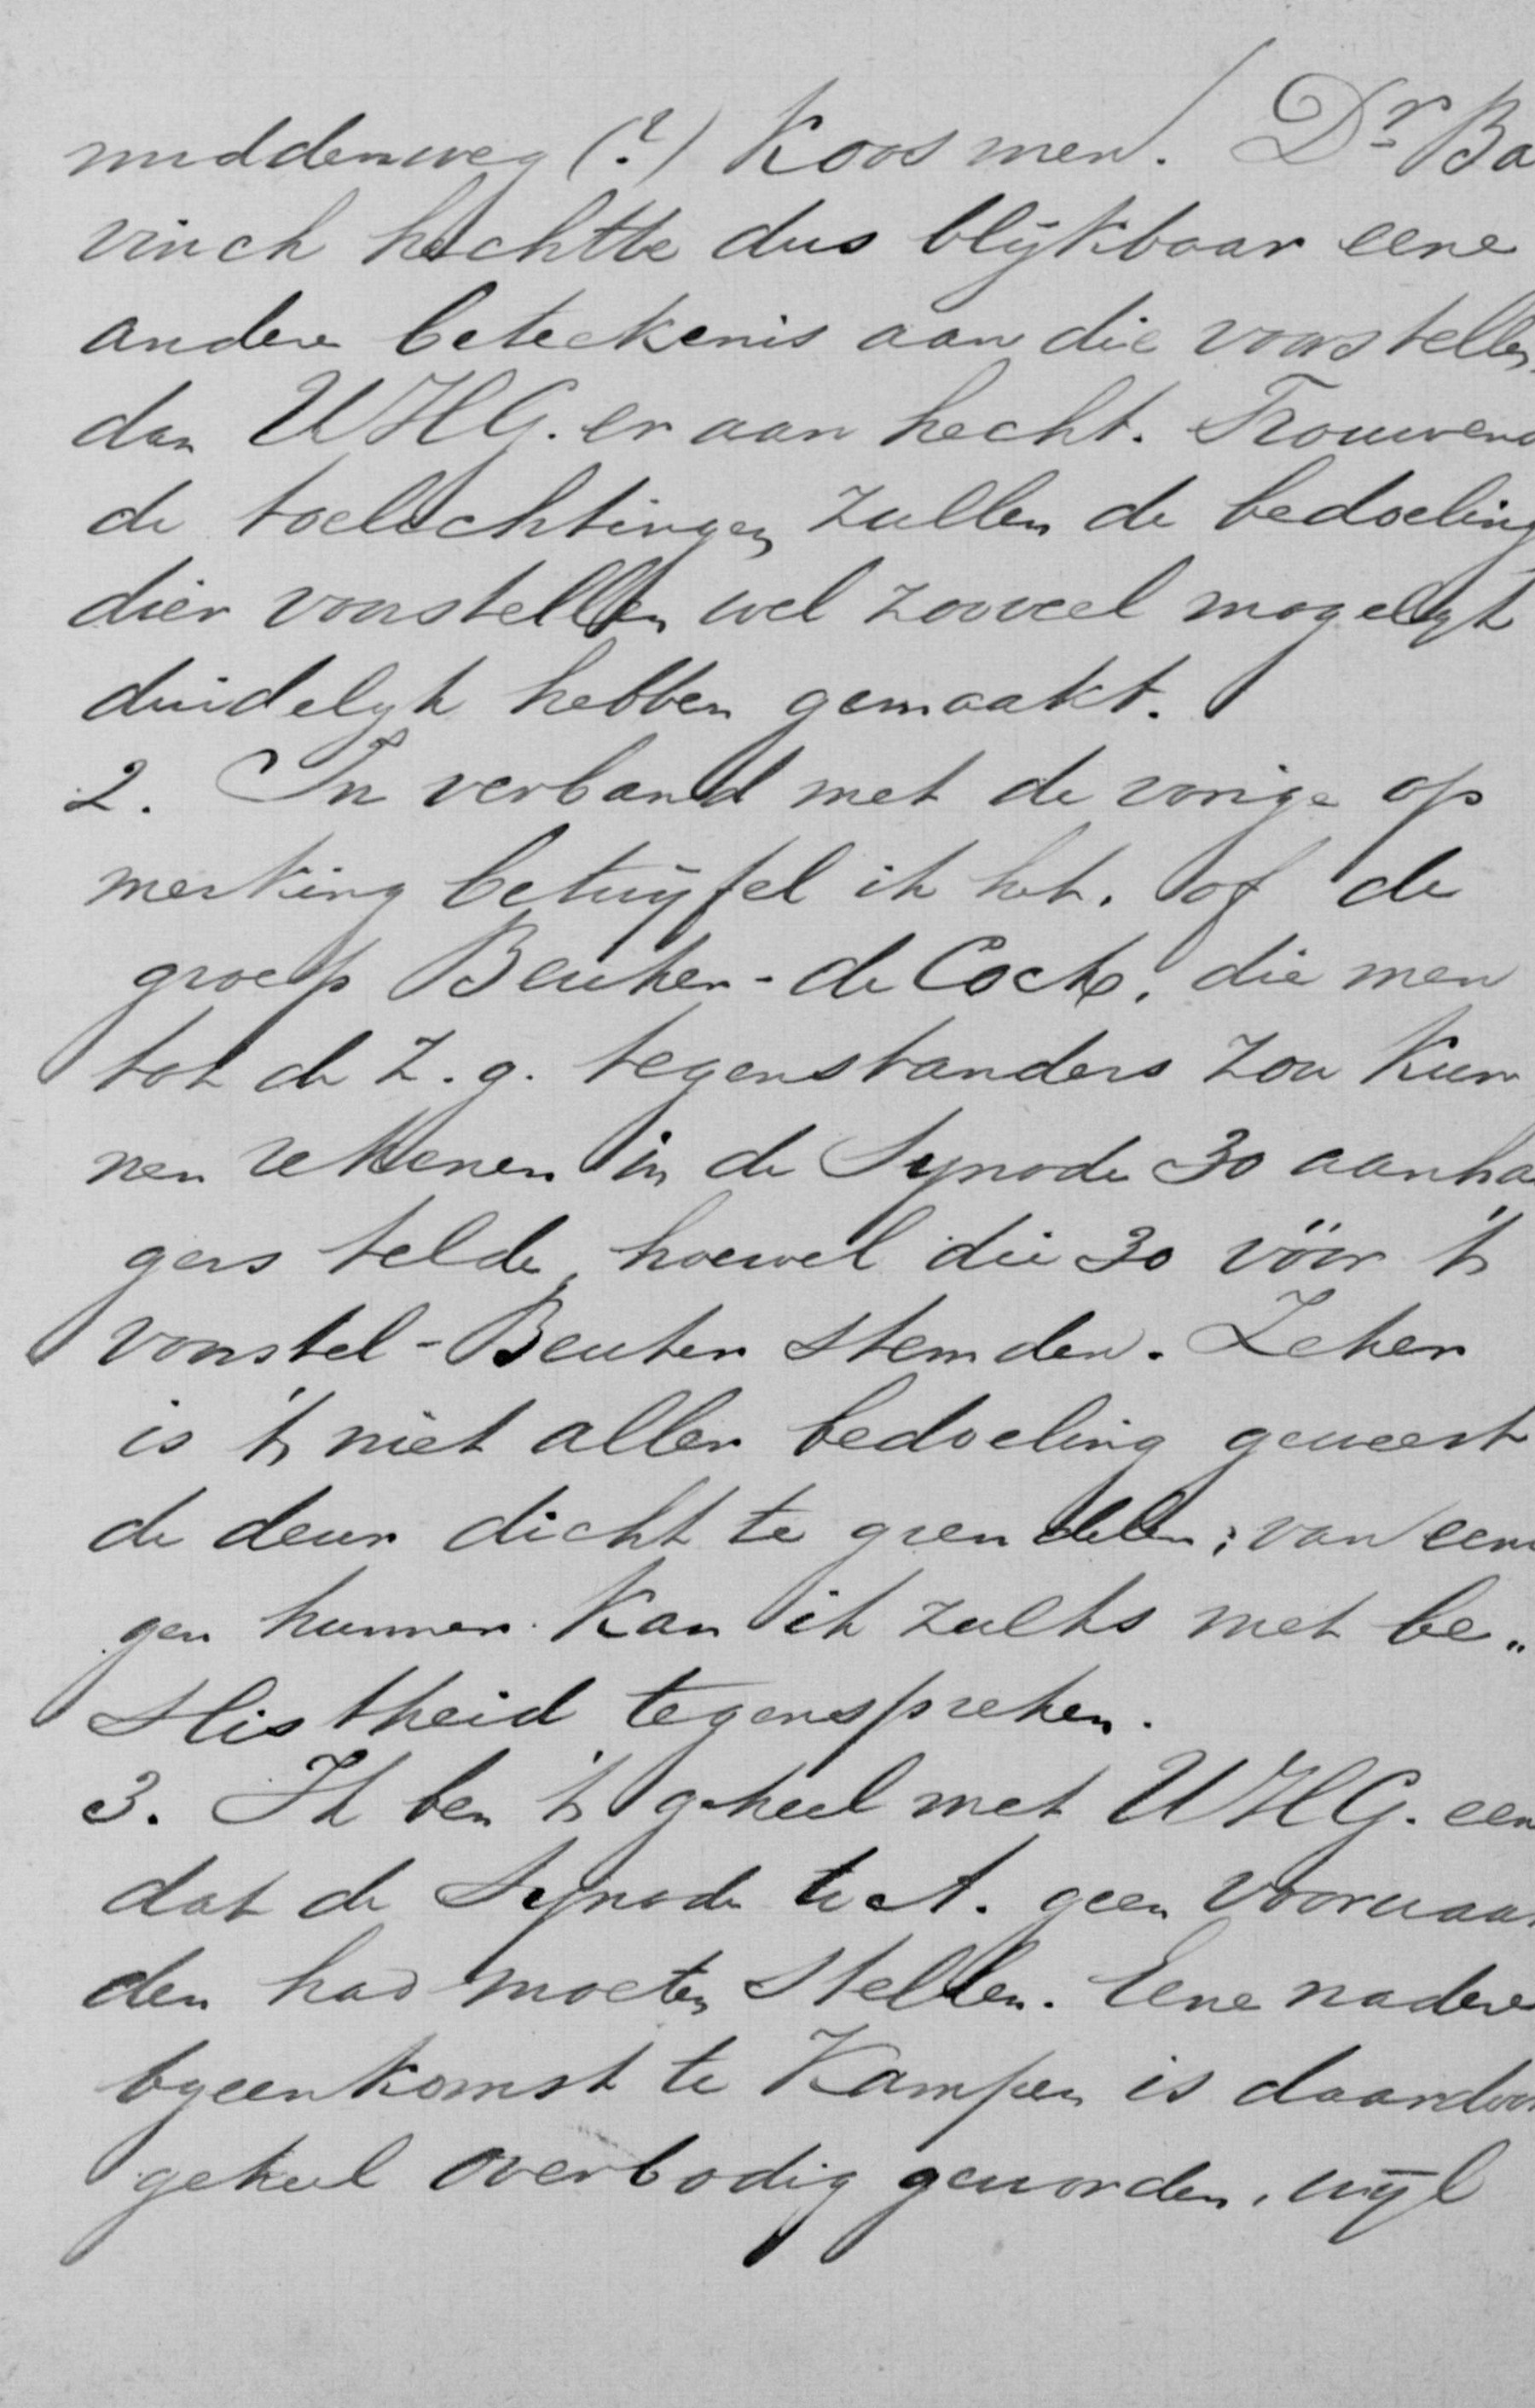 middenweg (?) koos men. Dr Ba
vinck hechtte dus blijkbaar eene
andere beteekenis aan die voorstellen,
dan UHG. er aan hecht. Trouwens
de toelichtingen zullen de bedoeling
dier voorstellen wel zooveel mogelijk
duidelijk hebben gemaakt.
2. In verband met de vorige op
merking betwijfel ik het, of de
groep Beuker-de Cock, die men
tot de z.g. tegenstanders zou kun
nen rekenen in de Synode 30 aanhan
gers telde, hoewel die 30 vóór 't
voorstel-Beuker stemden. Zeker
is 't niet aller bedoeling geweest
de deur dicht te grendelen; van eeni
gen hunner kan ik zulks met be„
slistheid tegenspreken.
3. Ik ben 't geheel met UHG. eens
dat de Synode te A. geen voorwaar
den had moeten stellen. Eene nadere
bijeenkomst te Kampen is daardoor
geheel overbodig geworden, wijl